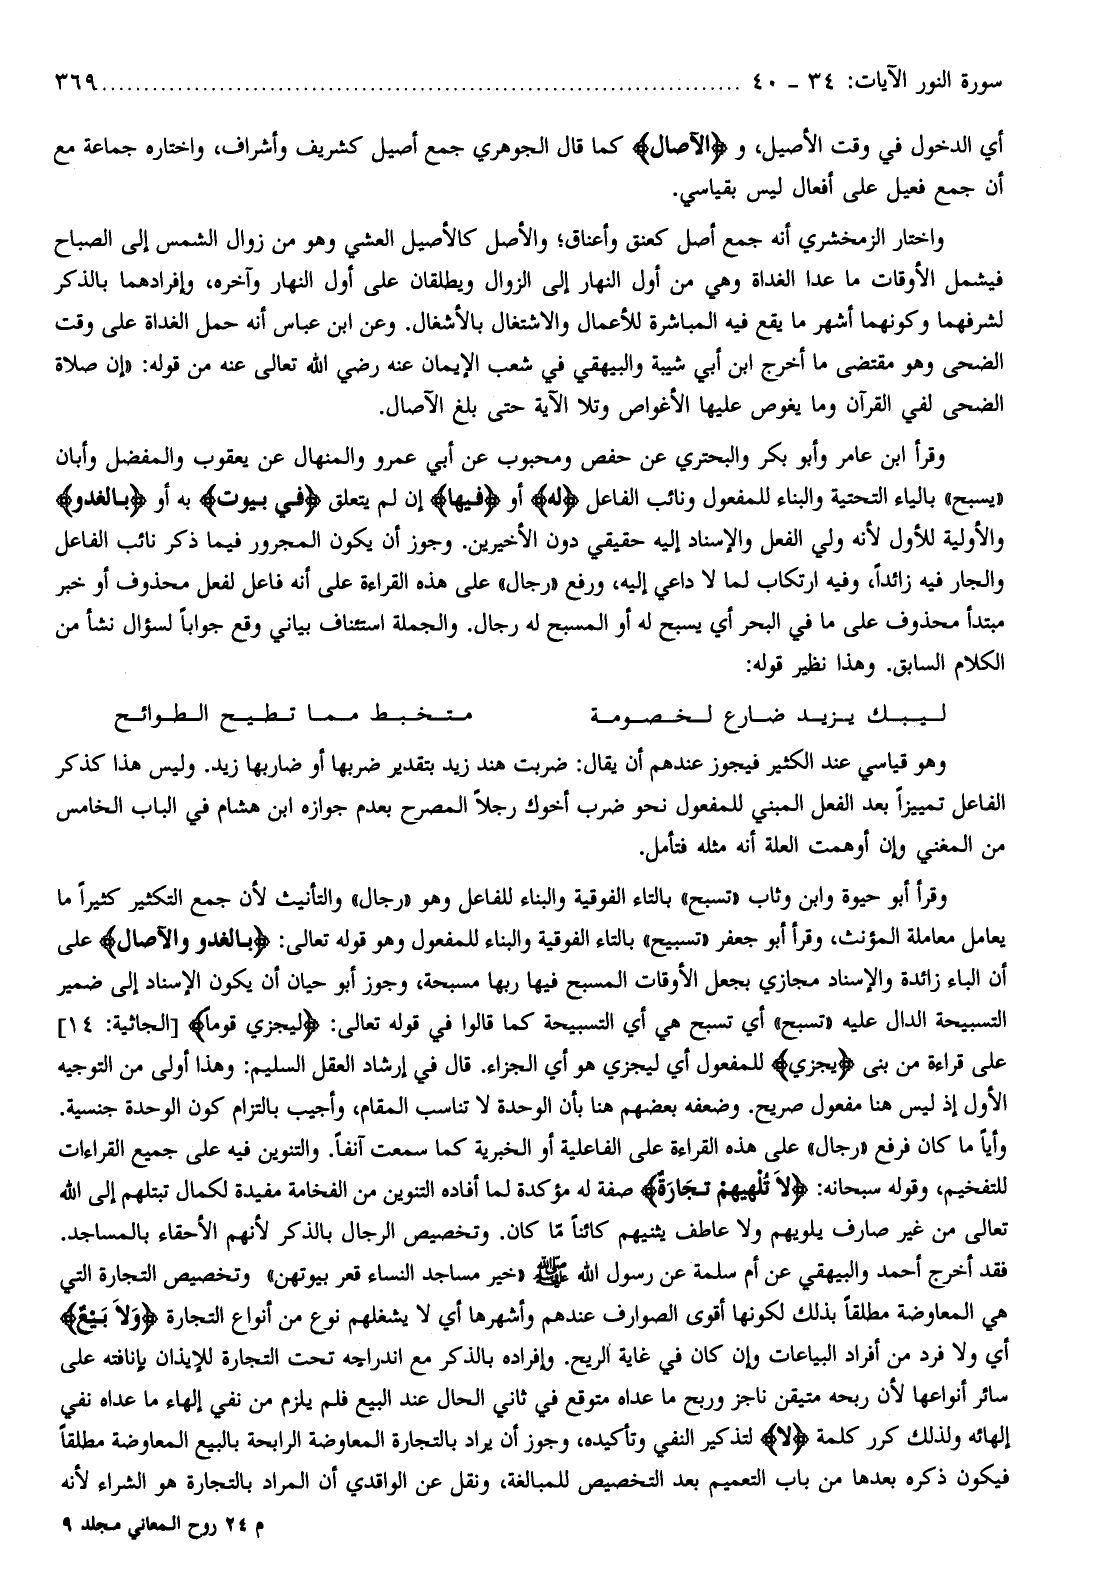 سورة النور الآيات: ٣٤ - ٤٠ ................................................ ٣٦٩
أي الدخول في وقت الأصيل، و ﴿الآصال﴾ كما قال الجوهري جمع أصيل كشريف وأشراف، واختاره جماعة مع
أن جمع فعيل على أفعال ليس بقياسي.
واختار الزمخشري أنه جمع أصل كعنق وأعناق؛ والأصل كالأصيل العشي وهو من زوال الشمس إلى الصباح
فيشمل الأوقات ما عدا الغداة وهي من أول النهار إلى الزوال ويطلقان على أول النهار وآخره، وإفرادهما بالذكر
لشرفهما وكونهما أشهر ما يقع فيه المباشرة للأعمال والاشتغال بالأشغال. وعن ابن عباس أنه حمل الغداة على وقت
الضحى وهو مقتضى ما أخرج ابن أبي شيبة والبيهقي في شعب الإيمان عنه رضي الله تعالى عنه من قوله: «إن صلاة
الضحى لفي القرآن وما يغوص عليها الأغواص وتلا الآية حتى بلغ الآصال.
وقرأ ابن عامر وأبو بكر والبحتري عن حفص ومحبوب عن أبي عمرو والمنهال عن يعقوب والمفضل وأبان
«يسبح» بالياء التحتية والبناء للمفعول ونائب الفاعل ﴿له﴾ أو ﴿فيها﴾ إن لم يتعلق ﴿في بيوت﴾ به أو ﴿بالغدو﴾
والأولية للأول لأنه ولي الفعل والإسناد إليه حقيقي دون الأخيرين. وجوز أن يكون المجرور فيما ذكر نائب الفاعل
والجار فيه زائداً، وفيه ارتكاب لما لا داعي إليه، ورفع «رجال» على هذه القراءة على أنه فاعل لفعل محذوف أو خبر
مبتدأ محذوف على ما في البحر أي يسبح له أو المسبح له رجال. والجملة استئناف بياني وقع جواباً لسؤال نشأ من
الكلام السابق. وهذا نظير قوله:
ليبك يزيد ضارع لخصومة متخبط مما تطيح الطوائح
وهو قياسي عند الكثير فيجوز عندهم أن يقال: ضربت هند زيد بتقدير ضربها أو ضاربها زيد. وليس هذا كذكر
الفاعل تمييزاً بعد الفعل المبني للمفعول نحو ضرب أخوك رجلاً المصرح بعدم جوازه ابن هشام في الباب الخامس
من المغني وإن أوهمت العلة أنه مثله فتأمل.
وقرأ أبو حيوة وابن وثاب «تسبح» بالتاء الفوقية والبناء للفاعل وهو «رجال» والتأنيث لأن جمع التكثير كثيراً ما
يعامل معاملة المؤنث، وقرأ أبو جعفر «تسبيح» بالتاء الفوقية والبناء للمفعول وهو قوله تعالى: ﴿بالغدو والآصال﴾ على
أن الباء زائدة والإسناد مجازي بجعل الأوقات المسبح فيها ربها مسبحة، وجوز أبو حيان أن يكون الإسناد إلى ضمير
التسبيحة الدال عليه «تسبح» أي تسبح هي أي التسبيحة كما قالوا في قوله تعالى: ﴿ليجزي قوماً﴾ [الجاثية: ١٤]
على قراءة من بنى ﴿يجزي﴾ للمفعول أي ليجزي هو أي الجزاء. قال في إرشاد العقل السليم: وهذا أولى من التوجيه
الأول إذ ليس هنا مفعول صريح. وضعفه بعضهم هنا بأن الوحدة لا تناسب المقام، وأجيب بالتزام كون الوحدة جنسية.
وأياً ما كان فرفع «رجال» على هذه القراءة على الفاعلية أو الخبرية كما سمعت آنفاً. والتنوين فيه على جميع القراءات
للتفخيم، وقوله سبحانه: ﴿لاَ تُلْهيهِمْ تجَارَةٌ﴾ صفة له مؤكدة لما أفاده التنوين من الفخامة مفيدة لكمال تبتلهم إلى الله
تعالى من غير صارف يلويهم ولا عاطف يثنيهم كائناً مّا كان. وتخصيص الرجال بالذكر لأنهم الأحقاء بالمساجد.
فقد أخرج أحمد والبيهقي عن أم سلمة عن رسول الله ﷺ «خير مساجد النساء قعر بيوتهن» وتخصيص التجارة التي
هي المعاوضة مطلقاً بذلك لكونها أقوى الصوارف عندهم وأشهرها أي لا يشغلهم نوع من أنواع التجارة ﴿وَلاَ بَيْعٌ﴾
أي ولا فرد من أفراد البياعات وإن كان في غاية الربح. وإفراده بالذكر مع اندراجه تحت التجارة للإيذان بإنافته على
سائر أنواعها لأن ربحه متيقن ناجز وربح ما عداه متوقع في ثاني الحال عند البيع فلم يلزم من نفي إلهاء ما عداه نفي
إلهائه ولذلك كرر كلمة ﴿لا﴾ لتذكير النفي وتأكيده، وجوز أن يراد بالتجارة المعاوضة الرابحة بالبيع المعاوضة مطلقاً
فيكون ذكره بعدها من باب التعميم بعد التخصيص للمبالغة، ونقل عن الواقدي أن المراد بالتجارة هو الشراء لأنه
م ٢٤ روح المعاني مجلد ٩